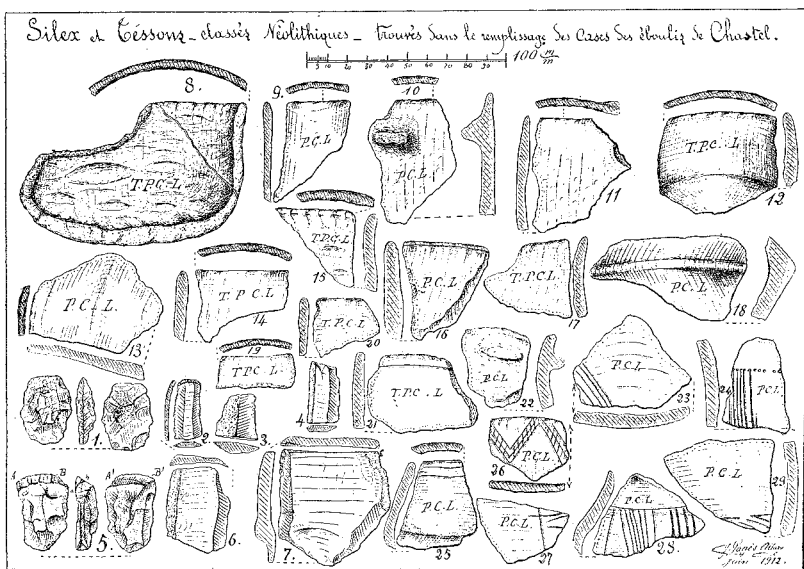 Silex et Tessons - classés Néolithiques - trouvés dans le remplissage des Cases des éboulis de Chastel.
5 10 20 30 40 50 60 70 80 90 100 m/m
8. 9. 10
P.C.L
T.P.C-L P.C.L 11 T.P.C.L 12
T.P.C.L
15
P.C-L. 13 T.P.C.L 14 T.P.C.L 20 P.C.L 16 T.P.C.L 17 P.C.L 18
19
T.P.C-L
1. 2 3. 4 T.P.C.-L 21 P.C.L 22 P.C.L 23 24 P.C.L
26 P.C.L
A B A' B'
5. 6. 7. P.C.L 25 P.C.L 27 P.C.L 28. P.C.L 29
Juin 1912.